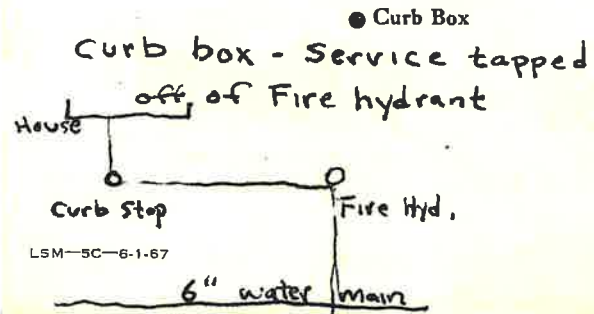 ● Curb Box
Curb box - Service tapped
off of Fire hydrant
House
Curb Stop
Fire Hyd.
LSM—5C—6-1-67
6" water main